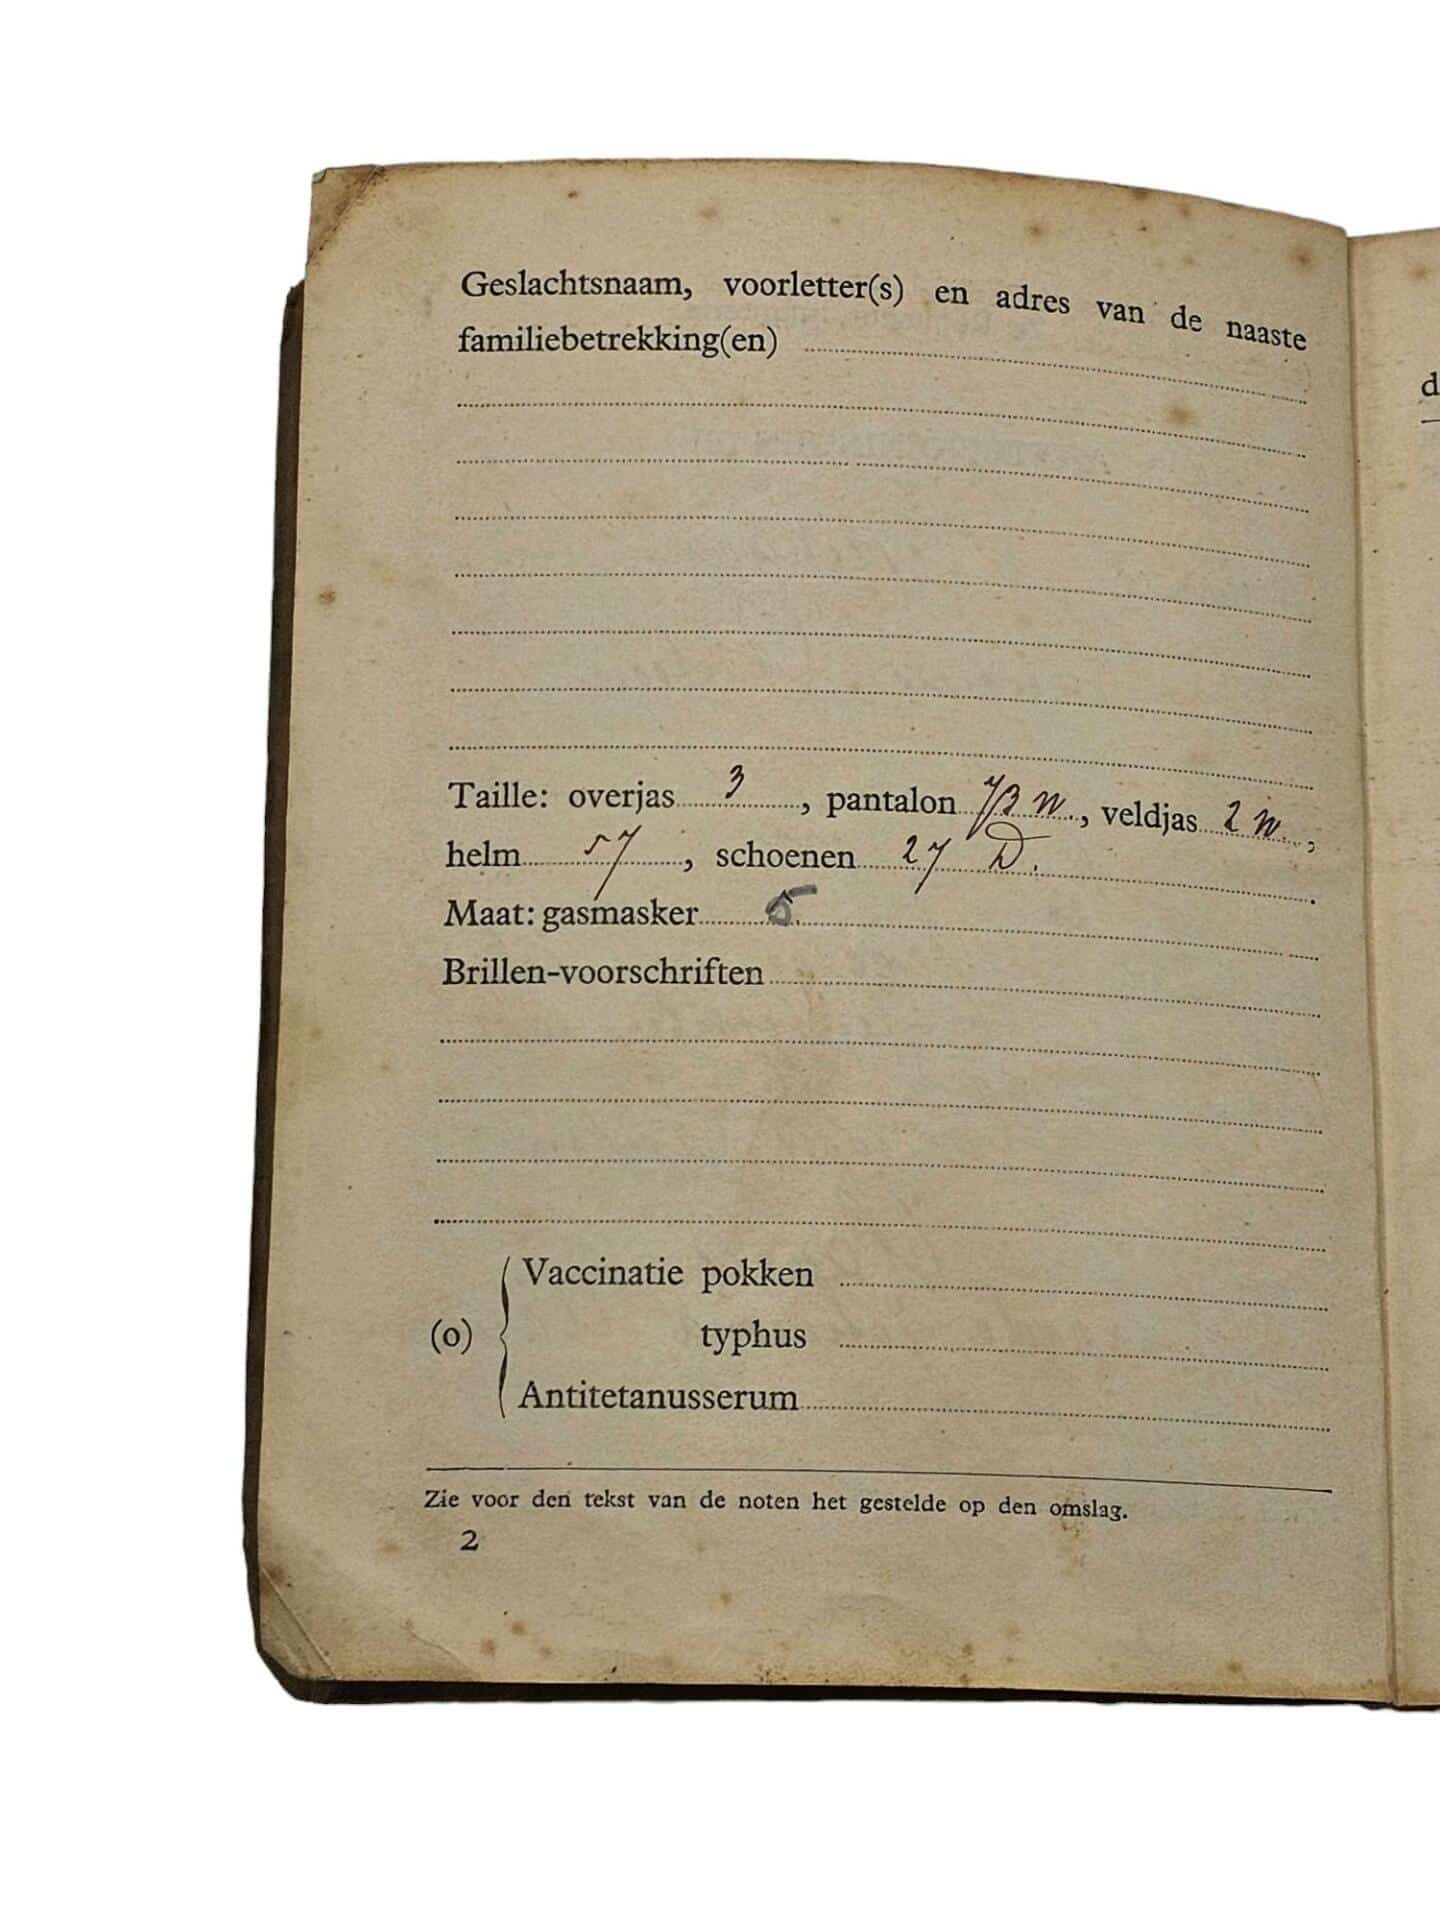 Geslachtsnaam, voorletter(s) en adres van de naaste
familiebetrekking(en)
Taille: overjas 3, pantalon N., veldjas 2 N.,
helm 57, schoenen 27 D.
Maat: gasmasker 5
Brillen-voorschriften
Vaccinatie pokken
(o) typhus
Antitetanusserum
Zie voor den tekst van de noten het gestelde op den omslag.
2
d